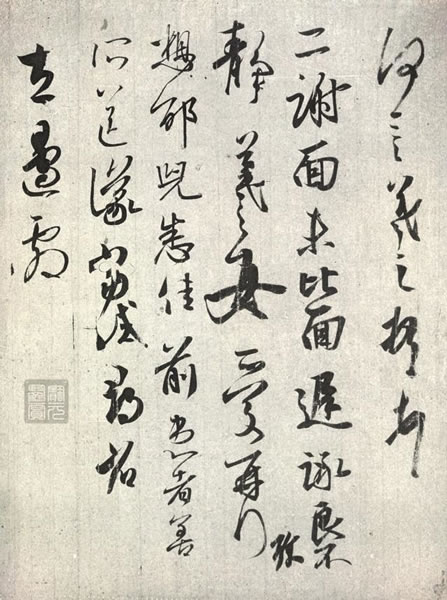 何言羲之頓首
二謝面未比面遲詠良不
靜羲之女愛再拜
想邵兒悉佳前患者善
所送議當試尋省
左邊劇